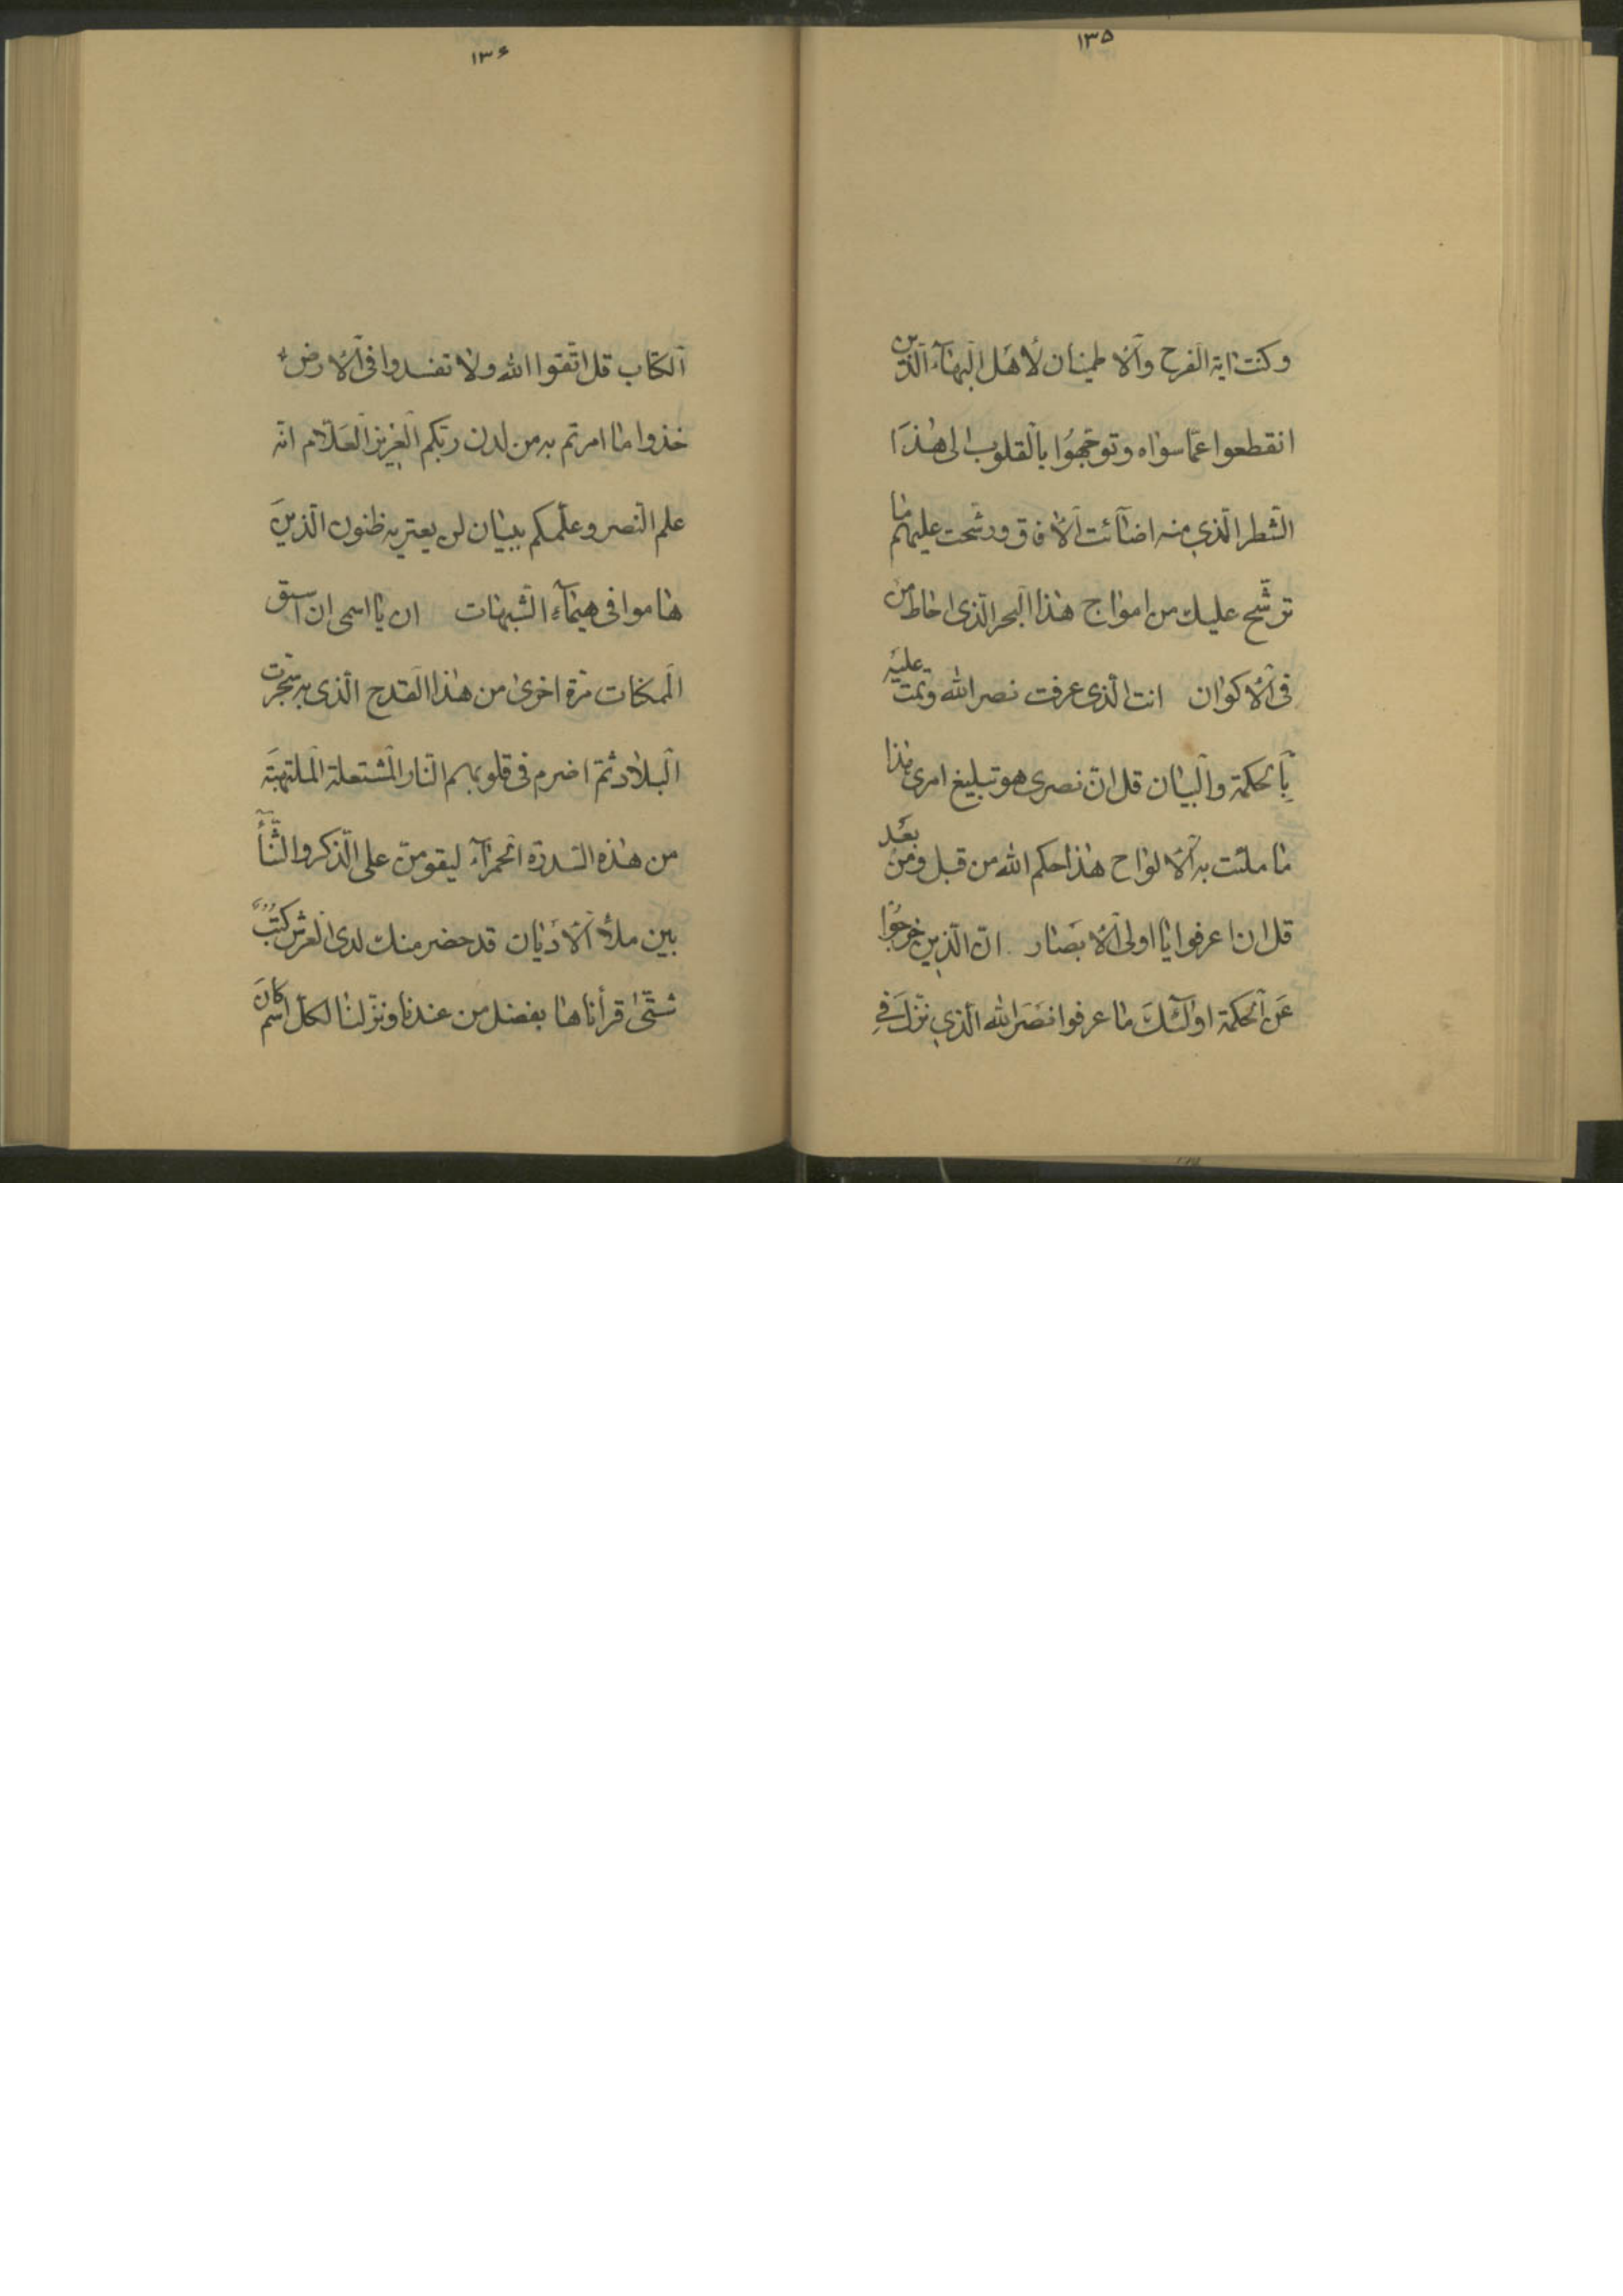 ١٣٥
وكنت اية الفرح والاطمينان لأهل البهآء الّذين
انقطعوا عمّا سواه وتوجّهوا بالقلوب الى هذا
الشّطر الّذي منه اضآئت الآفاق ورشّحت عليهم ما
ترشّح عليك من امواج هذا البحر الّذى احاط من
فى الاكوان انت الّذى عرفت نصر الله وقمت عليه
بالحكمة والبيان قل انّ نصرى هو تبليغ امرى هذا
ما ملئت به الالواح هذا حكم الله من قبل ومن بعد
قل ان اعرفوا يا اولى الابصار انّ الّذين خرجوا
عن الحكمة اولئك ما عرفوا نصر الله الّذي نزّل فى
١٣۶
الكتاب قل اتّقوا الله ولا تفسدوا فى الارض
خذوا ما امرتم به من لدن ربّكم العزيز العلّام انّه
علم النّصر وعلّمكم ببيان لن يعتريه ظنون الّذين
هاموا فى هيمآء الشّبهات ان يا اسمى ان اسق
الممكنات مرّة اخرى من هذا القدح الّذى به سجّرت
البلاد ثمّ اضرم فى قلوبهم النّار المشتعلة الملتهبة
من هذه السّدرة الحمرآء ليقومنّ على الذّكر والثّنآء
بين ملأ الاديان قد حضر منك لدى العرش كتب
شتّى قرأناها بفضل من عندنا ونزّلنا لكلّ اسم كان